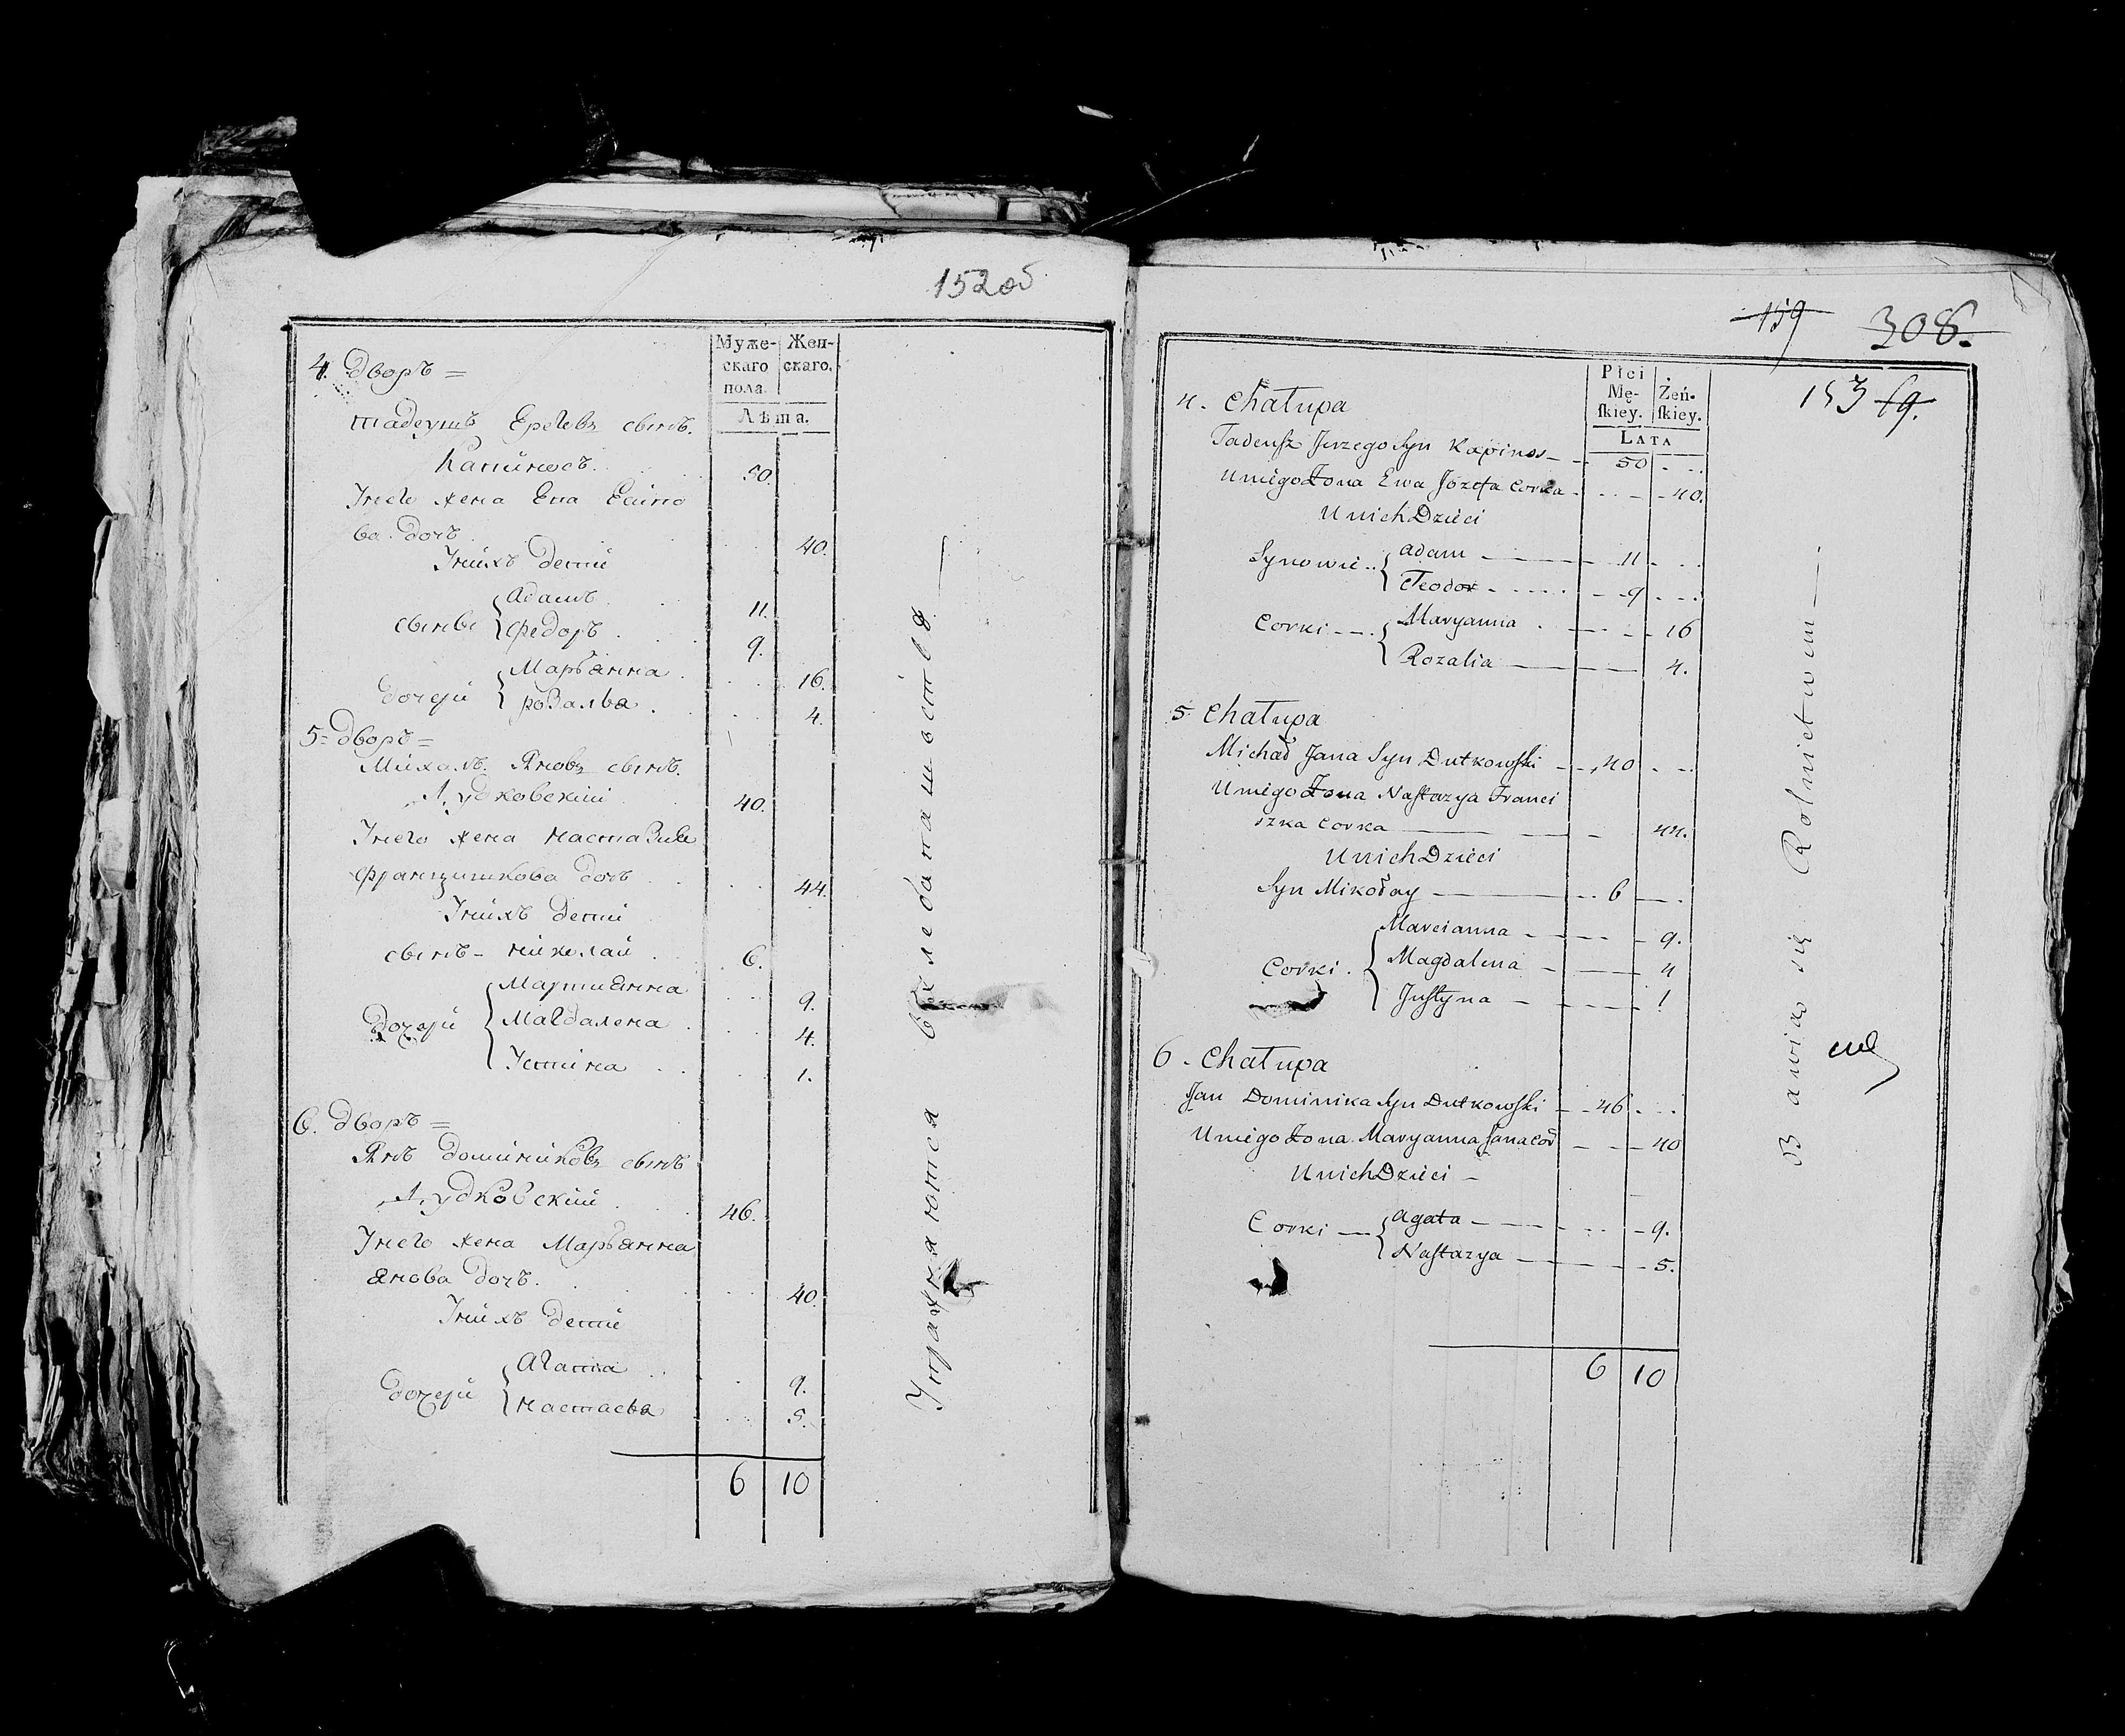 152 об
Муже- Жен-
скаго скаго.
пола.
Лѣта.
4. Дворъ =
Тадеушъ Еречевъ сынъ.
Капиносъ. 50.
У него жена Ева Есипо
ва дочь 40.
У нихъ дети
сыны Адамъ 11.
Федоръ 9.
дочери Марьянна 16.
розалья 4.
5 = Дворъ =
Михалъ. Яновъ сынъ.
Лудковскии 40.
У него жена настазия
францишкова дочь 44.
У нихъ дети
сынъ - николаи 6.
дочери Мартиянна 9.
Магдалена 4.
Устина 1.
6. Дворъ =
Янъ Доминиковъ сынъ
Лудковскии 46.
У него жена Марьянна
янова дочь. 40.
У нихъ дети
дочери Агата 9.
настасья 5.
6 10
Упражняются въ хлебопашестве
159 308.
153 69.
Płci
Mę- Żeń-
ſkiey. ſkiey.
LATA
4. Chałupa
Tadeuſz Jerzego Syn Kapinos 50
U niego Żona Ewa Józefa Corka 40.
U nich Dzieci
Synowie Adam 11
Teodor 9
Corki Maryanna 16
Rozalia 4.
5 Chałupa
Michał Jana Syn Dutkowſki 40
U niego Żona Naſtazya Franci
szka Corka 44.
U nich Dzieci
Syn Mikołay 6
Marcianna 9.
Corki Magdalena 4
Juſtyna 1
6 - Chałupa
Jan Dominika Syn Dutkowſki 46
U niego Żona Maryanna Jana Cor 40
U nich Dzieci
Corki Agata 9.
Naſtazya 5.
6 10
Bawią się Rolnictwem